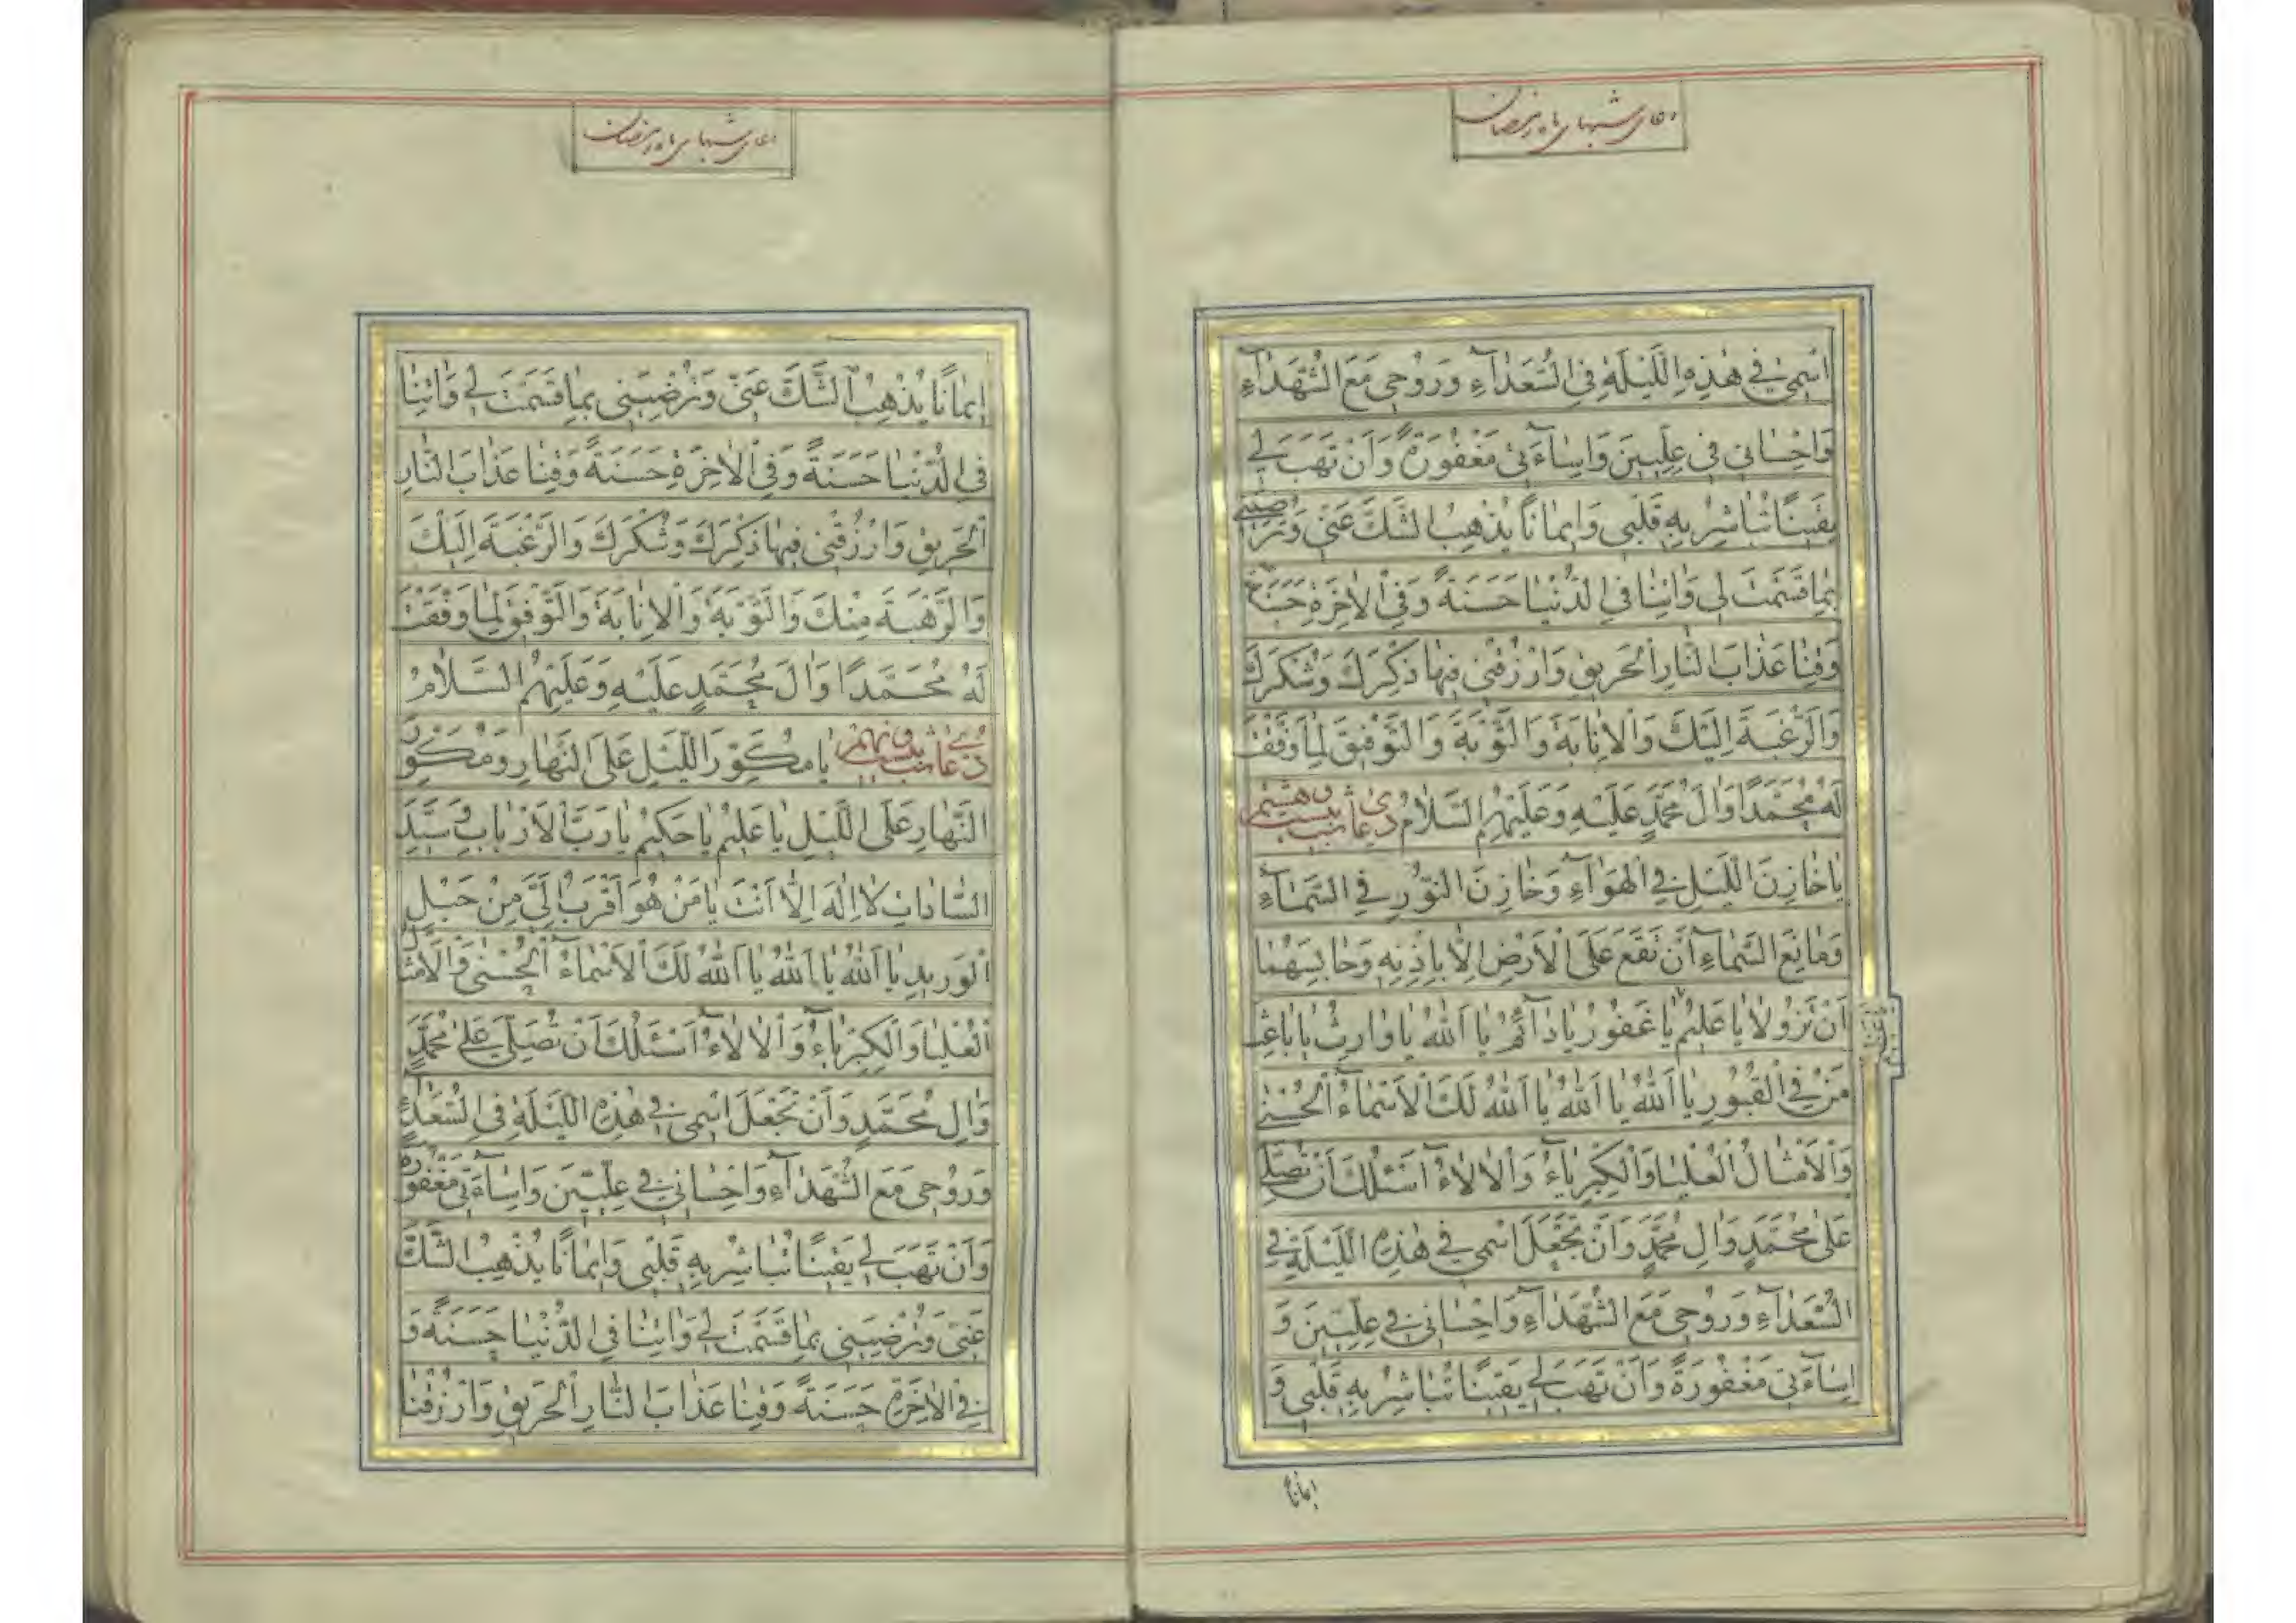 دعای شبهای ماه رمضان
اسْمِی فِی هٰذِهِ اللَّیْلَةِ فِی السُّعَدٰآءِ وَرُوحِی مَعَ الشُّهَدٰآءِ
وَاِحْسٰانِی فِی عِلِّیِّینَ وَاِسٰآءَتِی مَغْفُورَةً وَاَنْ تَهَبَ لِی
یَقِینًا تُبٰاشِرُ بِهِ قَلْبِی وَاِیمٰانًا یُذْهِبُ الشَّكَّ عَنِّی وَتُرْضِیَنِی
بِمٰا قَسَمْتَ لِی وَاٰتِنٰا فِی الدُّنْیٰا حَسَنَةً وَفِی الْاٰخِرَةِ حَسَنَةً
وَقِنٰا عَذٰابَ النّٰارِ الْحَرِیقِ وَارْزُقْنِی فِیهٰا ذِكْرَكَ وَشُكْرَكَ
وَالرَّغْبَةَ اِلَیْكَ وَالْاِنٰابَةَ وَالتَّوْبَةَ وَالتَّوْفِیقَ لِمٰا وَفَّقْتَ
لَهُ مُحَمَّدًا وَاٰلَ مُحَمَّدٍ عَلَیْهِ وَعَلَیْهِمُ السَّلٰامُ دعای شب بیست و هشتم
یٰا خٰازِنَ اللَّیْلِ فِی الْهَوٰآءِ وَخٰازِنَ النُّورِ فِی السَّمٰآءِ
وَمٰانِعَ السَّمٰآءِ اَنْ تَقَعَ عَلَی الْاَرْضِ اِلّٰا بِاِذْنِهِ وَحٰابِسَهُمٰا
اَنْ تَزُولٰا یٰا عَلِیمُ یٰا غَفُورُ یٰا دٰآئِمُ یٰا اَللّٰهُ یٰا وٰارِثُ یٰا بٰاعِثَ
مَنْ فِی الْقُبُورِ یٰا اَللّٰهُ یٰا اَللّٰهُ یٰا اَللّٰهُ لَكَ الْاَسْمٰآءُ الْحُسْنٰی
وَالْاَمْثٰالُ الْعُلْیٰا وَالْكِبْرِیٰآءُ وَالْاٰلٰاءُ اَسْئَلُكَ اَنْ تُصَلِّیَ
عَلٰی مُحَمَّدٍ وَاٰلِ مُحَمَّدٍ وَاَنْ تَجْعَلَ اسْمِی فِی هٰذِهِ اللَّیْلَةِ فِی
السُّعَدٰآءِ وَرُوحِی مَعَ الشُّهَدٰآءِ وَاِحْسٰانِی فِی عِلِّیِّینَ وَ
اِسٰآءَتِی مَغْفُورَةً وَاَنْ تَهَبَ لِی یَقِینًا تُبٰاشِرُ بِهِ قَلْبِی وَ
ایمانا
دعای شبهای ماه رمضان
اِیمٰانًا یُذْهِبُ الشَّكَّ عَنِّی وَتُرْضِیَنِی بِمٰا قَسَمْتَ لِی وَاٰتِنٰا
فِی الدُّنْیٰا حَسَنَةً وَفِی الْاٰخِرَةِ حَسَنَةً وَقِنٰا عَذٰابَ النّٰارِ
الْحَرِیقِ وَارْزُقْنِی فِیهٰا ذِكْرَكَ وَشُكْرَكَ وَالرَّغْبَةَ اِلَیْكَ
وَالرَّهْبَةَ مِنْكَ وَالتَّوْبَةَ وَالْاِنٰابَةَ وَالتَّوْفِیقَ لِمٰا وَفَّقْتَ
لَهُ مُحَمَّدًا وَاٰلَ مُحَمَّدٍ عَلَیْهِ وَعَلَیْهِمُ السَّلٰامُ
دعای شب بیست و نهم یٰا مُكَوِّرَ اللَّیْلِ عَلَی النَّهٰارِ وَمُكَوِّرَ
النَّهٰارِ عَلَی اللَّیْلِ یٰا عَلِیمُ یٰا حَكِیمُ یٰا رَبَّ الْاَرْبٰابِ وَسَیِّدَ
السّٰادٰاتِ لٰا اِلٰهَ اِلّٰا اَنْتَ یٰا مَنْ هُوَ اَقْرَبُ اِلَیَّ مِنْ حَبْلِ
الْوَرِیدِ یٰا اَللّٰهُ یٰا اَللّٰهُ یٰا اَللّٰهُ لَكَ الْاَسْمٰآءُ الْحُسْنٰی وَالْاَمْثٰالُ
الْعُلْیٰا وَالْكِبْرِیٰآءُ وَالْاٰلٰاءُ اَسْئَلُكَ اَنْ تُصَلِّیَ عَلٰی مُحَمَّدٍ
وَاٰلِ مُحَمَّدٍ وَاَنْ تَجْعَلَ اسْمِی فِی هٰذِهِ اللَّیْلَةِ فِی السُّعَدٰآءِ
وَرُوحِی مَعَ الشُّهَدٰآءِ وَاِحْسٰانِی فِی عِلِّیِّینَ وَاِسٰآءَتِی مَغْفُورَةً
وَاَنْ تَهَبَ لِی یَقِینًا تُبٰاشِرُ بِهِ قَلْبِی وَاِیمٰانًا یُذْهِبُ الشَّكَّ
عَنِّی وَتُرْضِیَنِی بِمٰا قَسَمْتَ لِی وَاٰتِنٰا فِی الدُّنْیٰا حَسَنَةً وَ
فِی الْاٰخِرَةِ حَسَنَةً وَقِنٰا عَذٰابَ النّٰارِ الْحَرِیقِ وَارْزُقْنٰا